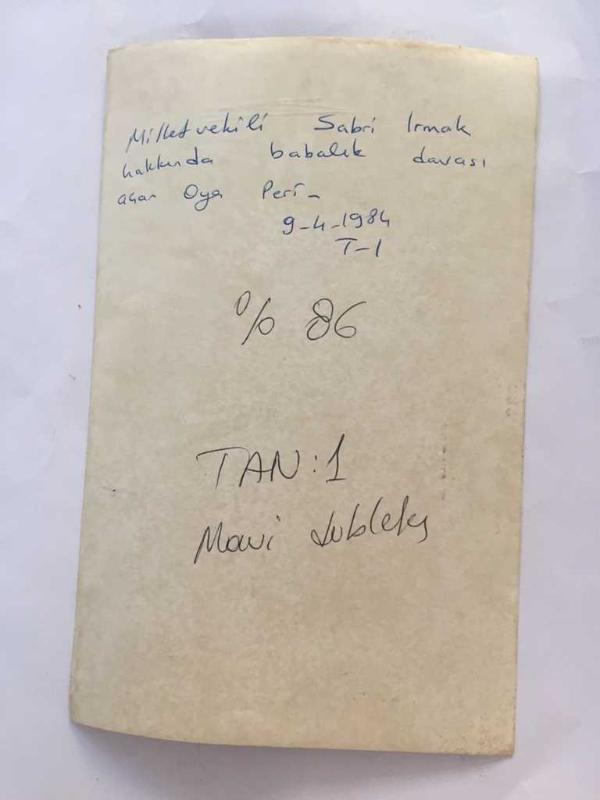 Milletvekili Sabri Irmak
hakkında babalık davası
açan Oya Peri-
9-4-1984
T-1
% 86
TAN:1
Mavi dubleks